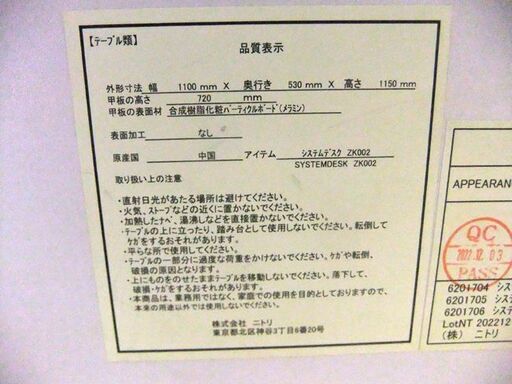 【テーブル類】
品質表示
外形寸法 幅 1100 mm X 奥行き 530 mm X 高さ 1150 mm
甲板の高さ 720 mm
甲板の表面材 合成樹脂化粧パーティクルボード(メラミン)
表面加工 なし
原産国 中国 アイテム システムデスク ZK002
SYSTEMDESK ZK002
取り扱い上の注意
・直射日光があたる場所は避けてください。
・火気、ストーブなどの近くに置かないでください。
・加熱したナベ、湯沸しなどを直接置かないでください。
・テーブルの上に立ったり、踏み台として使用しないでください。転倒して
ケガをするおそれがあります。
・平らな所で使用してください。
・テーブルの一部分に過度な荷重をかけないでください。ケガや転倒、
破損の原因となります。
・上にものをのせたままテーブルを移動しないでください。落下して、
破損・ケガをするおそれがあります。
・本商品は、業務用ではなく、家庭での使用を目的としておりますので、
本来の用途以外では使用しないでください。
株式会社 ニトリ
東京都北区神谷3丁目6番20号
APPEARAN
QC
2022.12.03
PASS
6201704 シス
6201705 システ
6201706 システ
LotNT 202212
(株) ニトリ